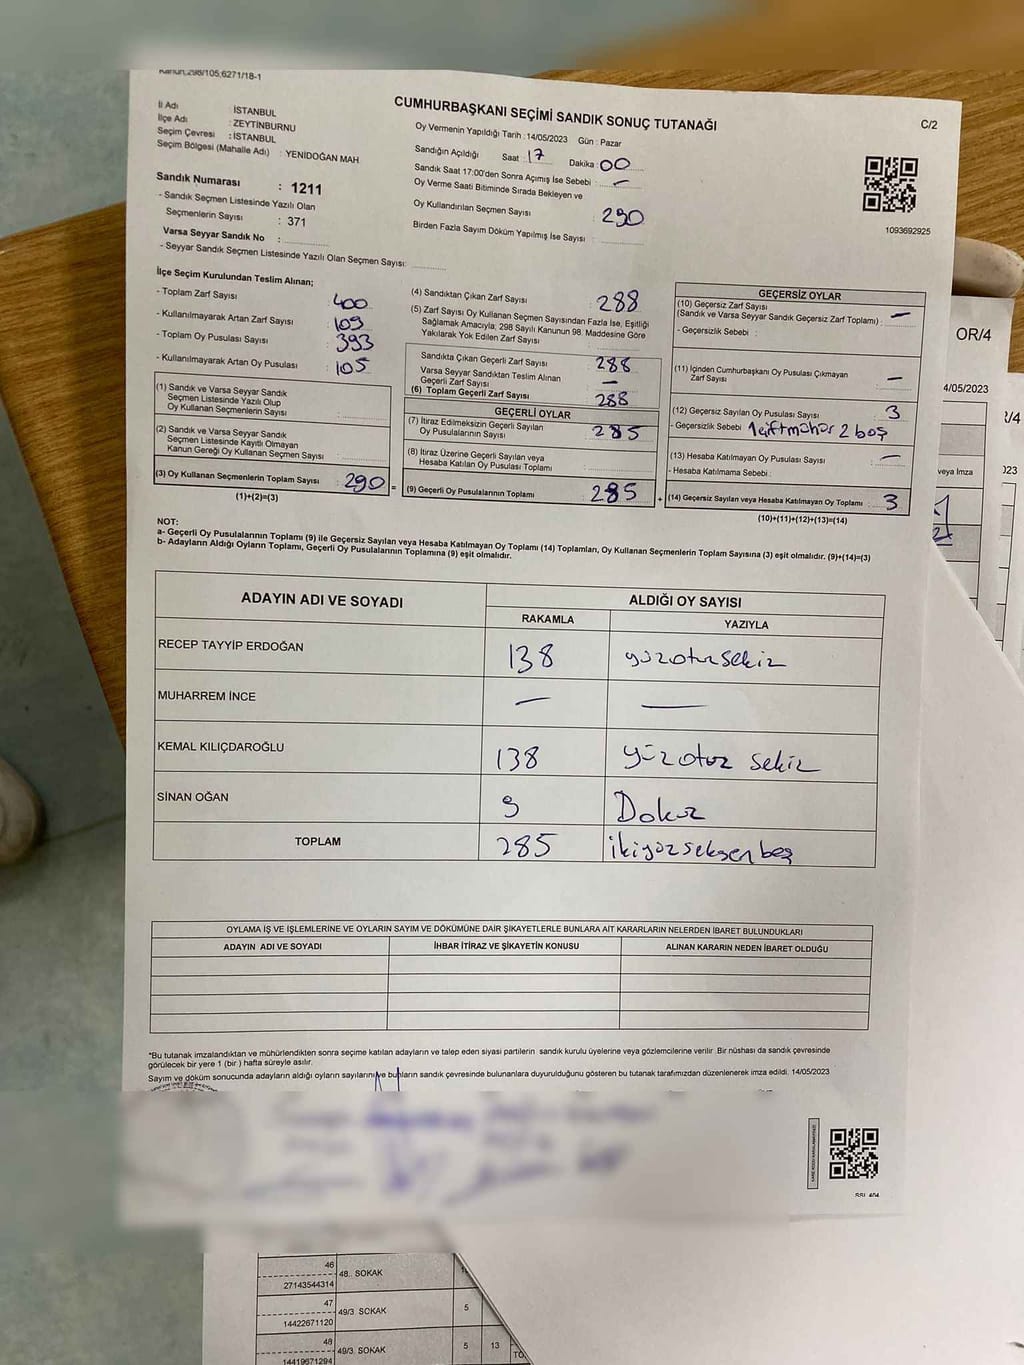 Kanun;298/105;6271/18-1
CUMHURBAŞKANI SEÇİMİ SANDIK SONUÇ TUTANAĞI
C/2
İl Adı : İSTANBUL
İlçe Adı : ZEYTİNBURNU
Seçim Çevresi : İSTANBUL
Seçim Bölgesi (Mahalle Adı) : YENİDOĞAN MAH.
Sandık Numarası : 1211
- Sandık Seçmen Listesinde Yazılı Olan
Seçmenlerin Sayısı : 371
Varsa Seyyar Sandık No :
- Seyyar Sandık Seçmen Listesinde Yazılı Olan Seçmen Sayısı:
Oy Vermenin Yapıldığı Tarih : 14/05/2023 Gün : Pazar
Sandığın Açıldığı Saat : 17 Dakika : 00
Sandık Saat 17:00'den Sonra Açımış İse Sebebi : —
Oy Verme Saati Bitiminde Sırada Bekleyen ve
Oy Kullandırılan Seçmen Sayısı : 290
Birden Fazla Sayım Döküm Yapılmış İse Sayısı :
1093692925
İlçe Seçim Kurulundan Teslim Alınan;
- Toplam Zarf Sayısı : 400
- Kullanılmayarak Artan Zarf Sayısı : 109
- Toplam Oy Pusulası Sayısı : 393
- Kullanılmayarak Artan Oy Pusulası : 105
(1) Sandık ve Varsa Seyyar Sandık
Seçmen Listesinde Yazılı Olup
Oy Kullanan Seçmenlerin Sayısı :
(2) Sandık ve Varsa Seyyar Sandık
Seçmen Listesinde Kayıtlı Olmayan
Kanun Gereği Oy Kullanan Seçmen Sayısı :
(3) Oy Kullanan Seçmenlerin Toplam Sayısı : 290 =
(1)+(2)=(3)
(4) Sandıktan Çıkan Zarf Sayısı : 288
(5) Zarf Sayısı Oy Kullanan Seçmen Sayısından Fazla İse, Eşitliği
Sağlamak Amacıyla; 298 Sayılı Kanunun 98. Maddesine Göre
Yakılarak Yok Edilen Zarf Sayısı :
Sandıkta Çıkan Geçerli Zarf Sayısı : 288
Varsa Seyyar Sandıktan Teslim Alınan
Geçerli Zarf Sayısı : —
(6) Toplam Geçerli Zarf Sayısı : 288
GEÇERLİ OYLAR
(7) İtiraz Edilmeksizin Geçerli Sayılan
Oy Pusulalarının Sayısı : 285
(8) İtiraz Üzerine Geçerli Sayılan veya
Hesaba Katılan Oy Pusulası Toplamı :
(9) Geçerli Oy Pusulalarının Toplamı : 285 +
GEÇERSİZ OYLAR
(10) Geçersiz Zarf Sayısı
(Sandık ve Varsa Seyyar Sandık Geçersiz Zarf Toplamı) : —
- Geçersizlik Sebebi :
(11) İçinden Cumhurbaşkanı Oy Pusulası Çıkmayan
Zarf Sayısı : —
(12) Geçersiz Sayılan Oy Pusulası Sayısı : 3
- Geçersizlik Sebebi : 1 çift mühür 2 boş
(13) Hesaba Katılmayan Oy Pusulası Sayısı : —
- Hesaba Katılmama Sebebi :
(14) Geçersiz Sayılan veya Hesaba Katılmayan Oy Toplamı : 3
(10)+(11)+(12)+(13)=(14)
NOT:
a- Geçerli Oy Pusulalarının Toplamı (9) ile Geçersiz Sayılan veya Hesaba Katılmayan Oy Toplamı (14) Toplamları, Oy Kullanan Seçmenlerin Toplam Sayısına (3) eşit olmalıdır. (9)+(14)=(3)
b- Adayların Aldığı Oyların Toplamı, Geçerli Oy Pusulalarının Toplamına (9) eşit olmalıdır.
ADAYIN ADI VE SOYADI ALDIĞI OY SAYISI
RAKAMLA YAZIYLA
RECEP TAYYİP ERDOĞAN 138 yüzotuzsekiz
MUHARREM İNCE — —
KEMAL KILIÇDAROĞLU 138 yüz otuz sekiz
SİNAN OĞAN 9 Dokuz
TOPLAM 285 ikiyüz seksen beş
OYLAMA İŞ VE İŞLEMLERİNE VE OYLARIN SAYIM VE DÖKÜMÜNE DAİR ŞİKAYETLERLE BUNLARA AİT KARARLARIN NELERDEN İBARET BULUNDUKLARI
ADAYIN ADI VE SOYADI İHBAR İTİRAZ VE ŞİKAYETİN KONUSU ALINAN KARARIN NEDEN İBARET OLDUĞU
*Bu tutanak imzalandıktan ve mühürlendikten sonra seçime katılan adayların ve talep eden siyasi partilerin sandık kurulu üyelerine veya gözlemcilerine verilir. Bir nüshası da sandık çevresinde
görülecek bir yere 1 (bir) hafta süreyle asılır.
Sayım ve döküm sonucunda adayların aldığı oyların sayılarını ve bunların sandık çevresinde bulunanlara duyurulduğunu gösteren bu tutanak tarafımızdan düzenlenerek imza edildi. 14/05/2023
OR/4
4/05/2023
veya Imza
46
48.. SOKAK
27143544314
47
49/3. SOKAK 5
14422671120
48
49/3. SOKAK 5 13
14419671294